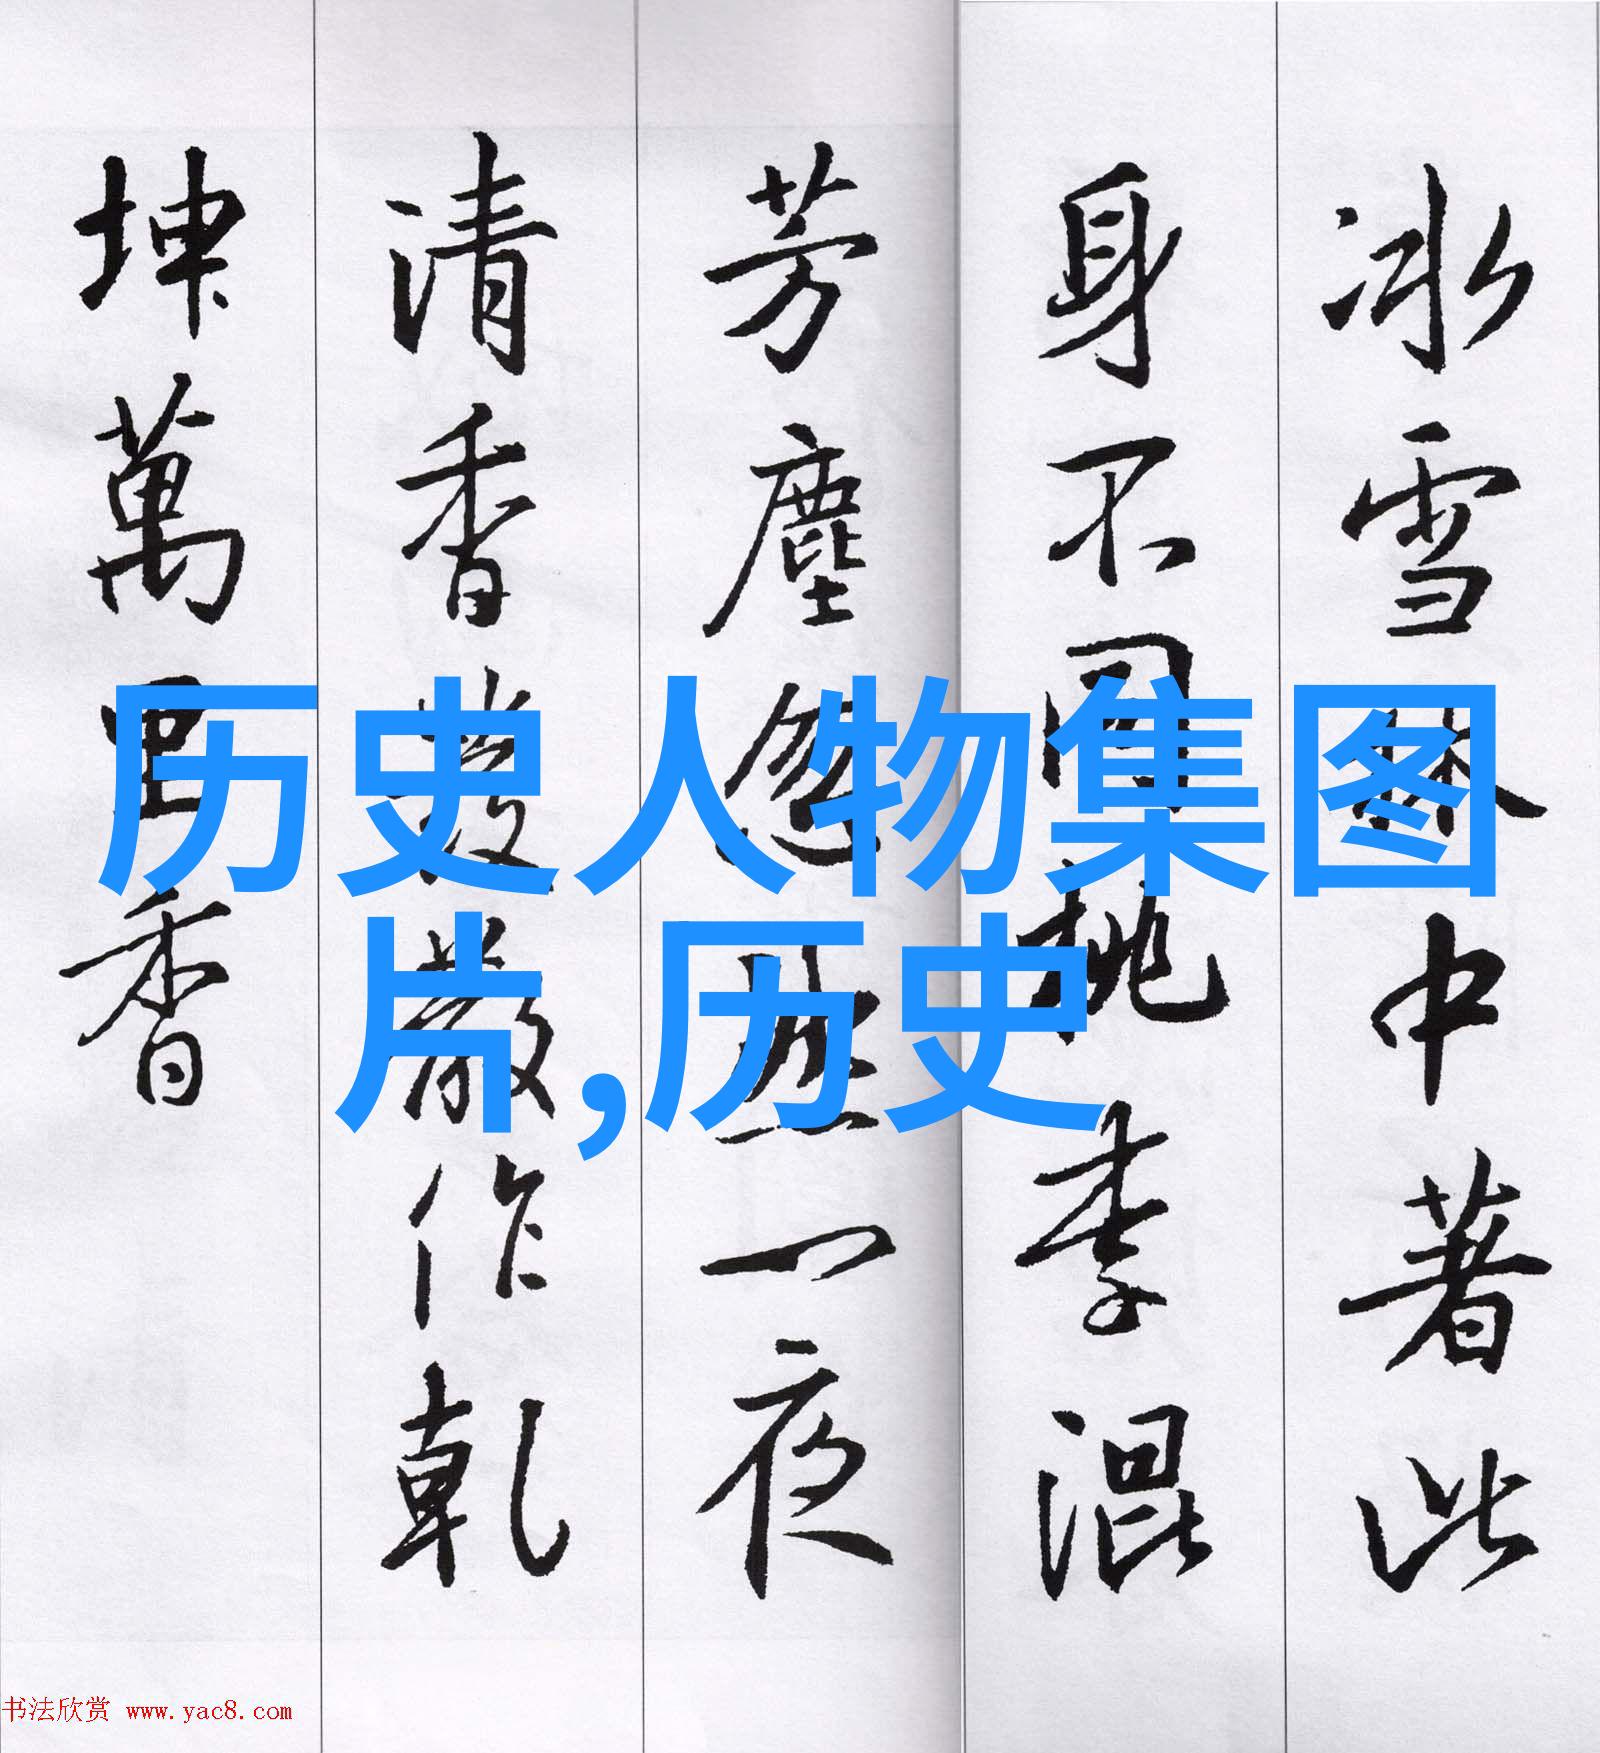 冰雪林中著此
身不同桃李混
芳塵忽然一夜
清香發散作乾
坤萬里香
历史人物集图
片,历史
书法欣赏 www.yac8.com